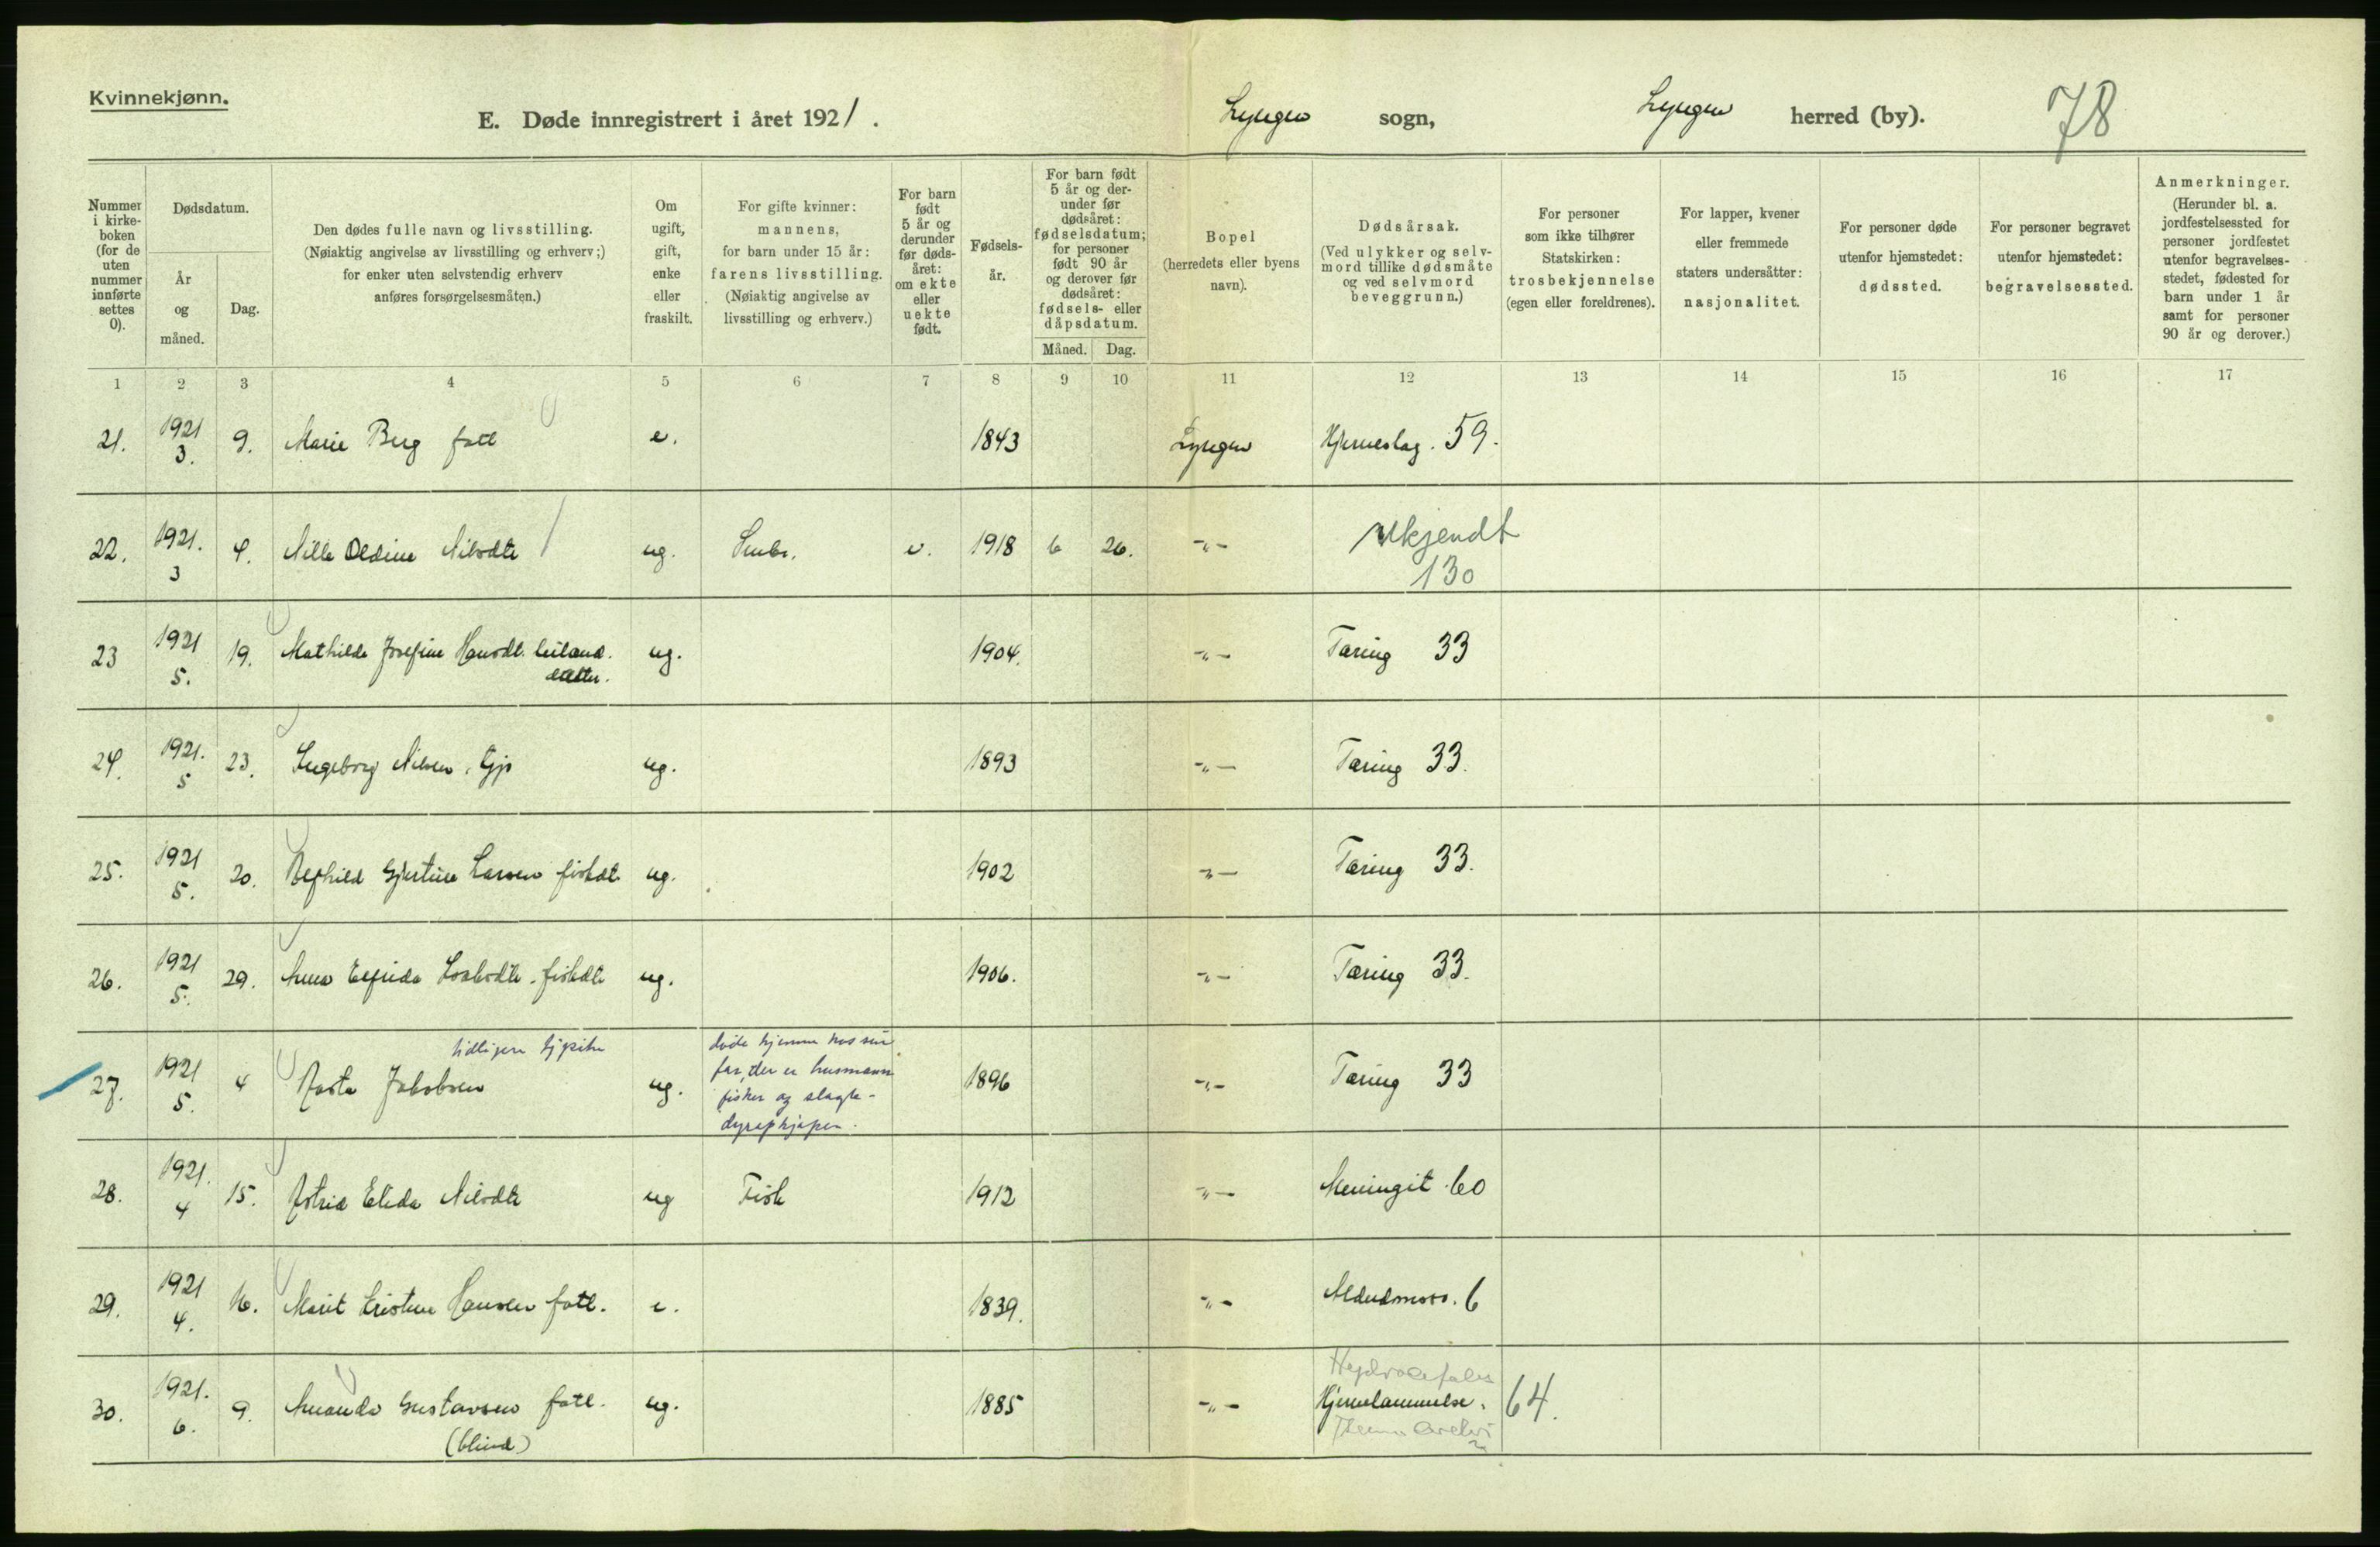 Kvinnekjønn.
E. Døde innregistrert i året 1921.
Lyngen sogn, Lyngen herred (by). 78
Nummer i kirke-boken (for de uten nummer innførte settes 0).
Dødsdatum.
År og måned.
Dag.
Den dødes fulle navn og livsstilling.
(Nøiaktig angivelse av livsstilling og erhverv;)
for enker uten selvstendig erhverv
anføres forsørgelsesmåten.)
Om ugift, gift, enke eller fraskilt.
For gifte kvinner:
mannens,
for barn under 15 år:
farens livsstilling.
(Nøiaktig angivelse av
livsstilling og erhverv.)
For barn født 5 år og derunder før døds-året: om ekte eller uekte født.
Fødsels-år.
For barn født 5 år og der-under før dødsåret: fødselsdatum; for personer født 90 år og derover før dødsåret: fødsels- eller dåpsdatum.
Måned. Dag.
Bopel
(herredets eller byens
navn).
Dødsårsak.
(Ved ulykker og selv-
mord tillike dødsmåte
og ved selvmord
beveggrunn.)
For personer
som ikke tilhører
Statskirken:
trosbekjennelse
(egen eller foreldrenes).
For lapper, kvener
eller fremmede
staters undersåtter:
nasjonalitet.
For personer døde
utenfor hjemstedet:
dødssted.
For personer begravet
utenfor hjemstedet:
begravelsessted.
Anmerkninger.
(Herunder bl. a.
jordfestelsessted for
personer jordfestet
utenfor begravelses-
stedet, fødested for
barn under 1 år
samt for personer
90 år og derover.)
1 2 3 4 5 6 7 8 9 10 11 12 13 14 15 16 17
21. 1921 3. 9. Marie Berg fatt e. 1843 Lyngen Hjerneslag. 59.
22. 1921. 3 4. Nille Oldine Nilsdtr ug. Småbr. e. 1918 6 26. -"- Ukjendt 130
23 1921 5. 19. Mathilde Josefine Hansdt. ug. 1904. -"- Tæring 33
24. 1921. 5 23. Ingeborg Nilsen. Gjp ug. 1893 -"- Tæring 33.
25. 1921 5. 20. Gjertine Larsen fiskdt ug. 1902 -"- Tæring 33.
26. 1921 5. 29. Anna Elfrida fiskdtr ug. 1906. -"- Tæring 33.
27. 1921 5. 4 tidligere tjpike Jakobsen ug. døde hjemme hos sin
far, der er husmann
fisker og slagte-
dyropkjøper. 1896 -"- Tæring 33
28. 1921. 4 15. Astrid Elida Nilsdtr ug Fisk 1912 -"- Meningit 60
29. 1921 4. 16. Marit Kristine Hansen fatt. e. 1839. -"- 6
30. 1921. 6. 9. Amanda Gustavsen fatt.
(blind) ug. 1885 -"- Hydrocefalus
Hjernelammelse. 64.